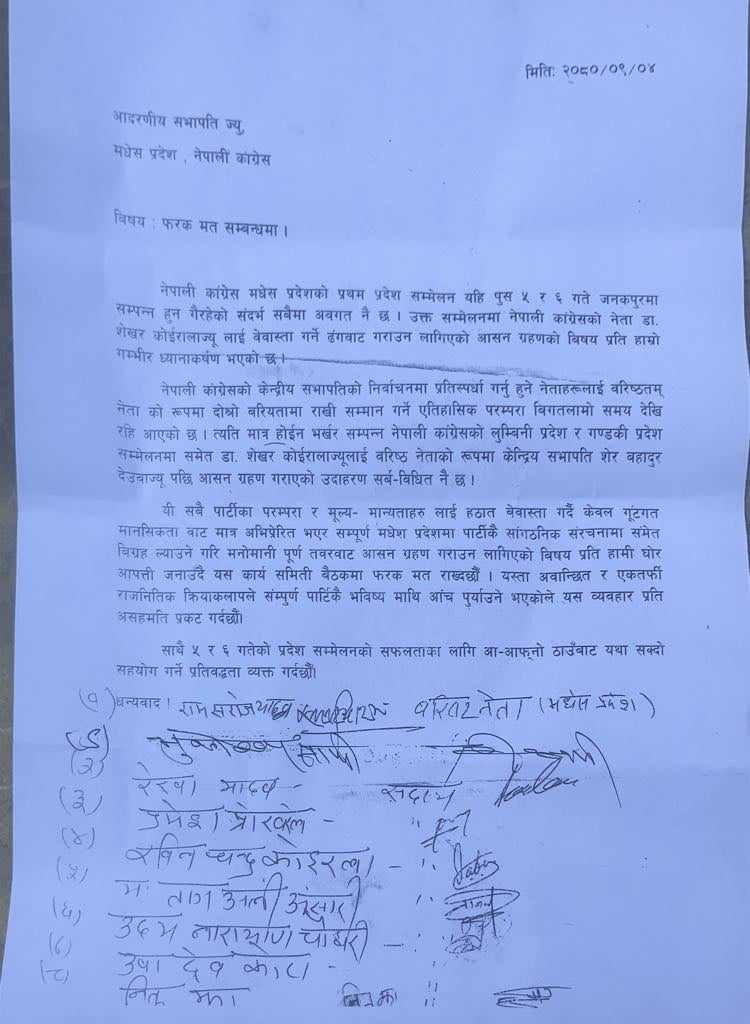 मितिः २०८०/०९/०४
आदरणीय सभापति ज्यु,
मधेस प्रदेश , नेपाली कांग्रेस
विषय : फरक मत सम्बन्धमा ।
नेपाली कांग्रेस मधेस प्रदेशको प्रथम प्रदेश सम्मेलन यहि पुस ५ र ६ गते जनकपुरमा
सम्पन्न हुन गैरहेको संदर्भ सबैमा अवगत नै छ । उक्त सम्मेलनमा नेपाली कांग्रेसको नेता डा.
शेखर कोईरालाज्यू लाई बेवास्ता गर्ने ढंगवाट गराउन लागिएको आसन ग्रहणको बिषय प्रति हाम्रो
गम्भीर ध्यानाकर्षण भएको छ ।
नेपाली कांग्रेसको केन्द्रीय सभापतिको निर्वाचनमा प्रतिस्पर्धा गर्नु हुने नेताहरूलाई वरिष्ठतम्
नेता को रूपमा दोश्रो बरियतामा राखी सम्मान गर्ने एतिहासिक परम्परा बिगतलामो समय देखि
रहि आएको छ । त्यति मात्र होईन भर्खर सम्पन्न नेपाली कांग्रेसको लुम्बिनी प्रदेश र गण्डकी प्रदेश
सम्मेलनमा समेत डा. शेखर कोईरालाज्यूलाई वरिष्ठ नेताको रूपमा केन्द्रिय सभापति शेर वहादुर
देउवाज्यू पछि आसन ग्रहण गराएको उदाहरण सर्ब-विधित नै छ ।
यी सबै पार्टीका परम्परा र मूल्य- मान्यताहरु लाई हठात बेवास्ता गर्दै केवल गूटगत
मानसिकता वाट मात्र अभिप्रेरित भएर सम्पूर्ण मधेश प्रदेशमा पार्टीकै सांगठनिक संरचनामा संमेत
विग्रह ल्याउने गरि मनोमानी पूर्ण तवरवाट आसन ग्रहण गराउन लागिएको बिषय प्रति हामी घोर
आपत्ती जनाउदै यस कार्य समिती बैठकमा फरक मत राख्दछौं । यस्ता अवान्छित र एकतर्फी
राजनितिक क्रियाकलापले संम्पुर्ण पार्टिकै भविष्य माथि आंच पुर्याउने भएकोले यस व्यवहार प्रति
असहमति प्रकट गर्दछौं।
साथै ५ र ६ गतेको प्रदेश सम्मेलनको सफलताका लागि आ-आफ्नो ठाउँबाट यथा सक्दो
सहयोग गर्ने प्रतिवद्धता व्यक्त गर्दछौं।
धन्यवाद ! रामसरोज यादव वरिष्ट नेता (मधेस प्रदेश)
(२)
(३) रेखा यादव - सदस्य
(४) उमेश
(५) चन्द्र कोइराला -
(६) अली अंसारी
उदय नारायण चौधरी -
उषा देवकोटा -
झा